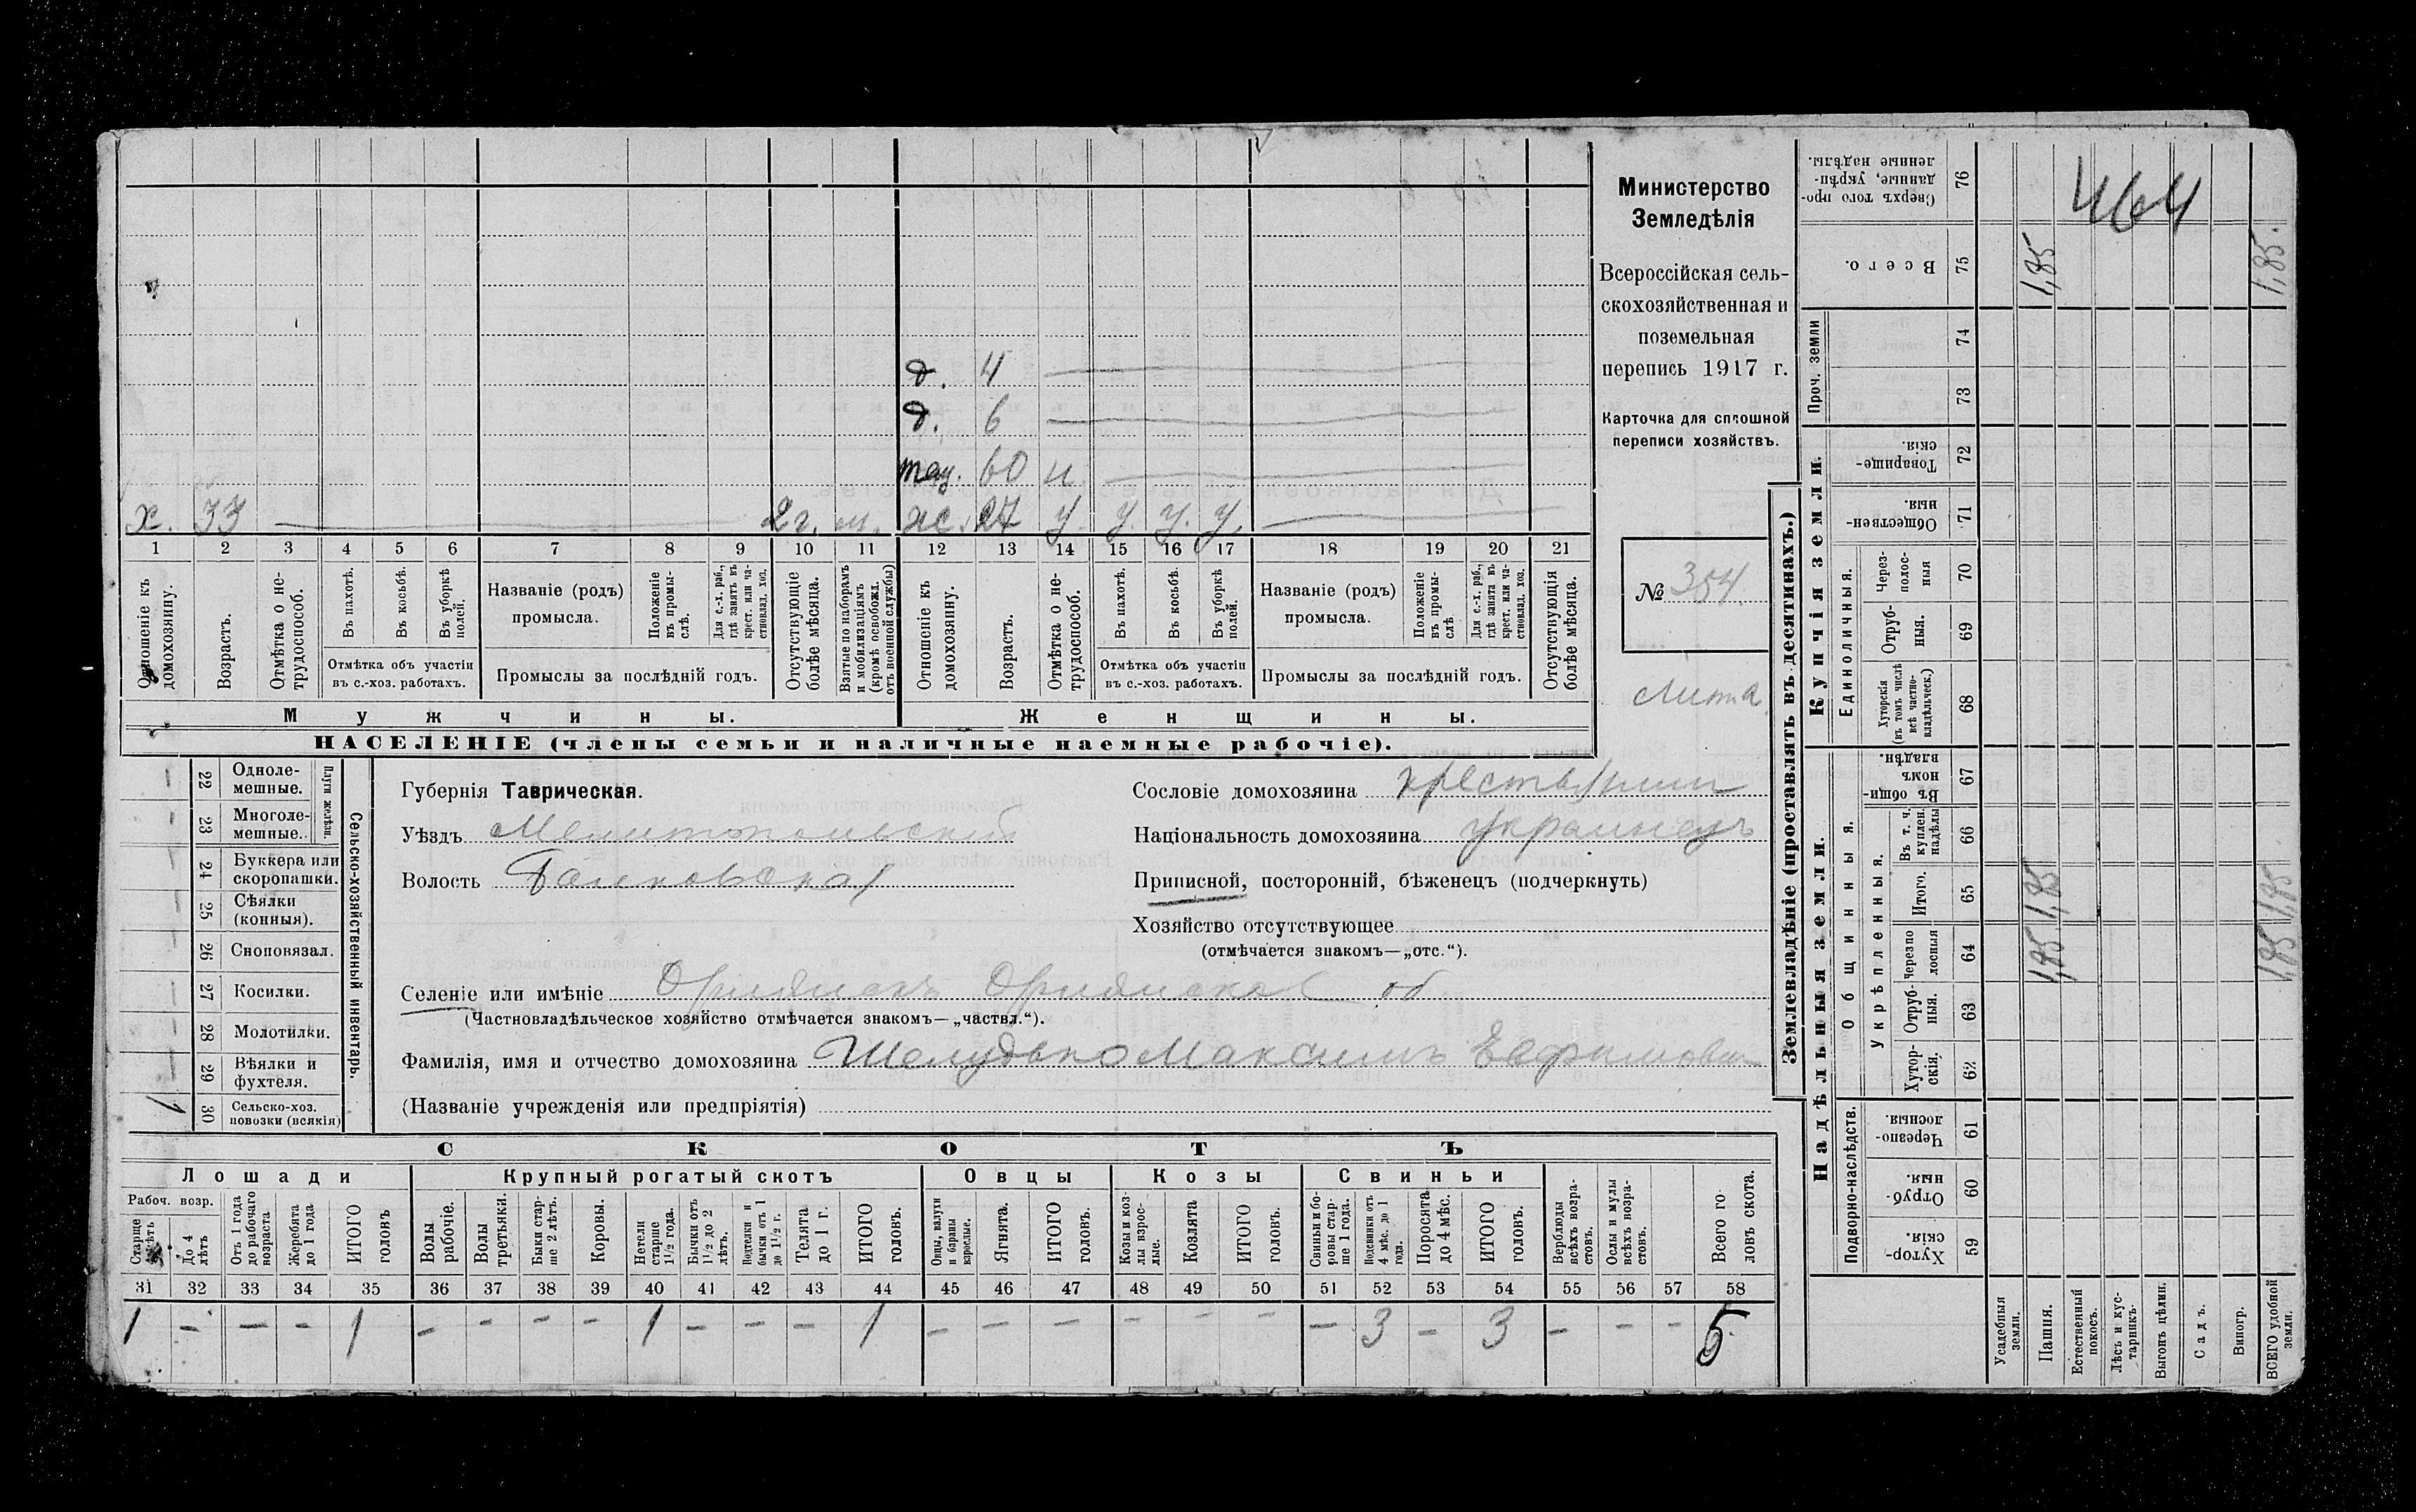 д. 4
д. 6
мач. 60 н.
х. 33 2 г. м. ж. 27 у. у. у. у.
1 2 3 4 5 6 7 8 9 10 11 12 13 14 15 16 17 18 19 20 21
Отношеніе къ домохозяину.
Возрастъ.
Отмѣтка о не-
трудоспособ.
Въ пахотѣ.
Въ косьбѣ.
Въ уборкѣ полей.
Отмѣтка объ участіи
въ с.-хоз. работахъ.
Названіе (родъ)
промысла.
Положеніе въ промы-
слѣ.
Для с.-х. раб., гдѣ занятъ въ крест. или ча-
стновлад. хоз.
Промыслы за послѣдній годъ.
Отсутствующіе болѣе мѣсяца.
Взятые по наборамъ и мобилизаціямъ (кромѣ освобожд. отъ военной службы)
Отношеніе къ домохозяину.
Возрастъ.
Отмѣтка о не-
трудоспособ.
Въ пахотѣ.
Въ косьбѣ.
Въ уборкѣ полей.
Отмѣтка объ участіи
въ с.-хоз. работахъ.
Названіе (родъ)
промысла.
Положеніе въ промы-
слѣ.
Для с.-х. раб., гдѣ занята въ крест. или ча-
стновлад. хоз.
Промыслы за послѣдній годъ.
Отсутствующія болѣе мѣсяца.
Мужчины.
Женщины.
НАСЕЛЕНІЕ (члены семьи и наличные наемные рабочіе).
Министерство
Земледѣлія
Всероссійская сель-
скохозяйственная и
поземельная
перепись 1917 г.
Карточка для сплошной
переписи хозяйствъ.
№ 354.
22 Одноле-
мешные.
23 Многоле-
мешные.
Плуги желѣзн.
24 Буккера или
скоропашки.
25 Сѣялки
(конныя).
26 Сноповязал.
27 Косилки.
28 Молотилки.
29 Вѣялки и
фухтеля.
1 30 Сельско-хоз.
повозки (всякія)
Сельско-хозяйственный инвентарь.
Губернія Таврическая.
Уѣздъ Мелитопольскій
Волость
Сословіе домохозяина крестьянин
Національность домохозяина украинецъ
Приписной, посторонній, бѣженецъ (подчеркнуть)
Хозяйство отсутствующее
(отмѣчается знакомъ—„отс.“).
Селеніе или имѣніе
(Частновладѣльческое хозяйство отмѣчается знакомъ—„частвл.“).
Фамилія, имя и отчество домохозяина Шелудько Максимъ Ефимович
(Названіе учрежденія или предпріятія)
СКОТЪ
Лошади
Крупный рогатый скотъ
Овцы
Козы
Свиньи
Рабоч. возр.
Старше
До 4 лѣтъ
Отъ 1 года до рабочаго возраста
Жеребята до 1 года
ИТОГО головъ
Волы рабочіе.
Волы третьяки.
Быки стар-
ше 2 лѣтъ.
Коровы.
Нетели старше 1½ года.
Бычки отъ 1½ до 2 лѣтъ.
Подтелки и бычки отъ 1 до 1½ г.
Телята до 1 г.
ИТОГО головъ.
Овцы, валухи и бараны взрослые.
Ягнята.
ИТОГО головъ.
Козы и коз-
лы взрос-
лые.
Козлята
ИТОГО головъ.
Свиньи и бо-
ровы стар-
ше 1 года.
Подсвинки отъ 4 мѣс. до 1 года.
Поросята до 4 мѣс.
ИТОГО головъ.
Верблюды всѣхъ возра-
стовъ.
Ослы и мулы всѣхъ возра-
стовъ.
Всего го-
ловъ скота.
31 32 33 34 35 36 37 38 39 40 41 42 43 44 45 46 47 48 49 50 51 52 53 54 55 56 57 58
1 - - - 1 - - - - 1 - - - 1 - - - - - - - 3 - 3 - - - 5
Землевладѣніе (проставлять въ десятинахъ.)
Купчія земли.
Надѣльныя земли.
464
Сверхъ того про-
данные, укрѣп-
ленные надѣлы. 76
Всего. 75 1,85 1,85.
Проч. земли
74
73
Товарище-
скія. 72
Обществен-
ныя. 71
Единоличныя.
Через-
полос-
ныя 70
Отруб-
ныя. 69
Хуторскія
(въ томъ числѣ
всѣ частно-
владѣльческ.) 68
Общинныя.
Въ общи-
номъ
владѣн. 67
Укрѣпленныя.
Въ т. ч.
куплен.
надѣлы 66
Итого. 65 1,85 1,85
Черезпо
лосныя 64 1,85 1,85
Отруб-
ныя. 63
Хутор-
скія. 62
Подворно-наслѣдств.
Черезпо-
лосныя 61
Отруб-
ныя. 60
Хутор-
скія. 59
Усадебныя земли.
Пашня.
Естественный покосъ.
Лѣсъ и кус-
тарникъ.
Выгонъ цѣлин.
Садъ.
Виногр.
ВСЕГО удобной земли.